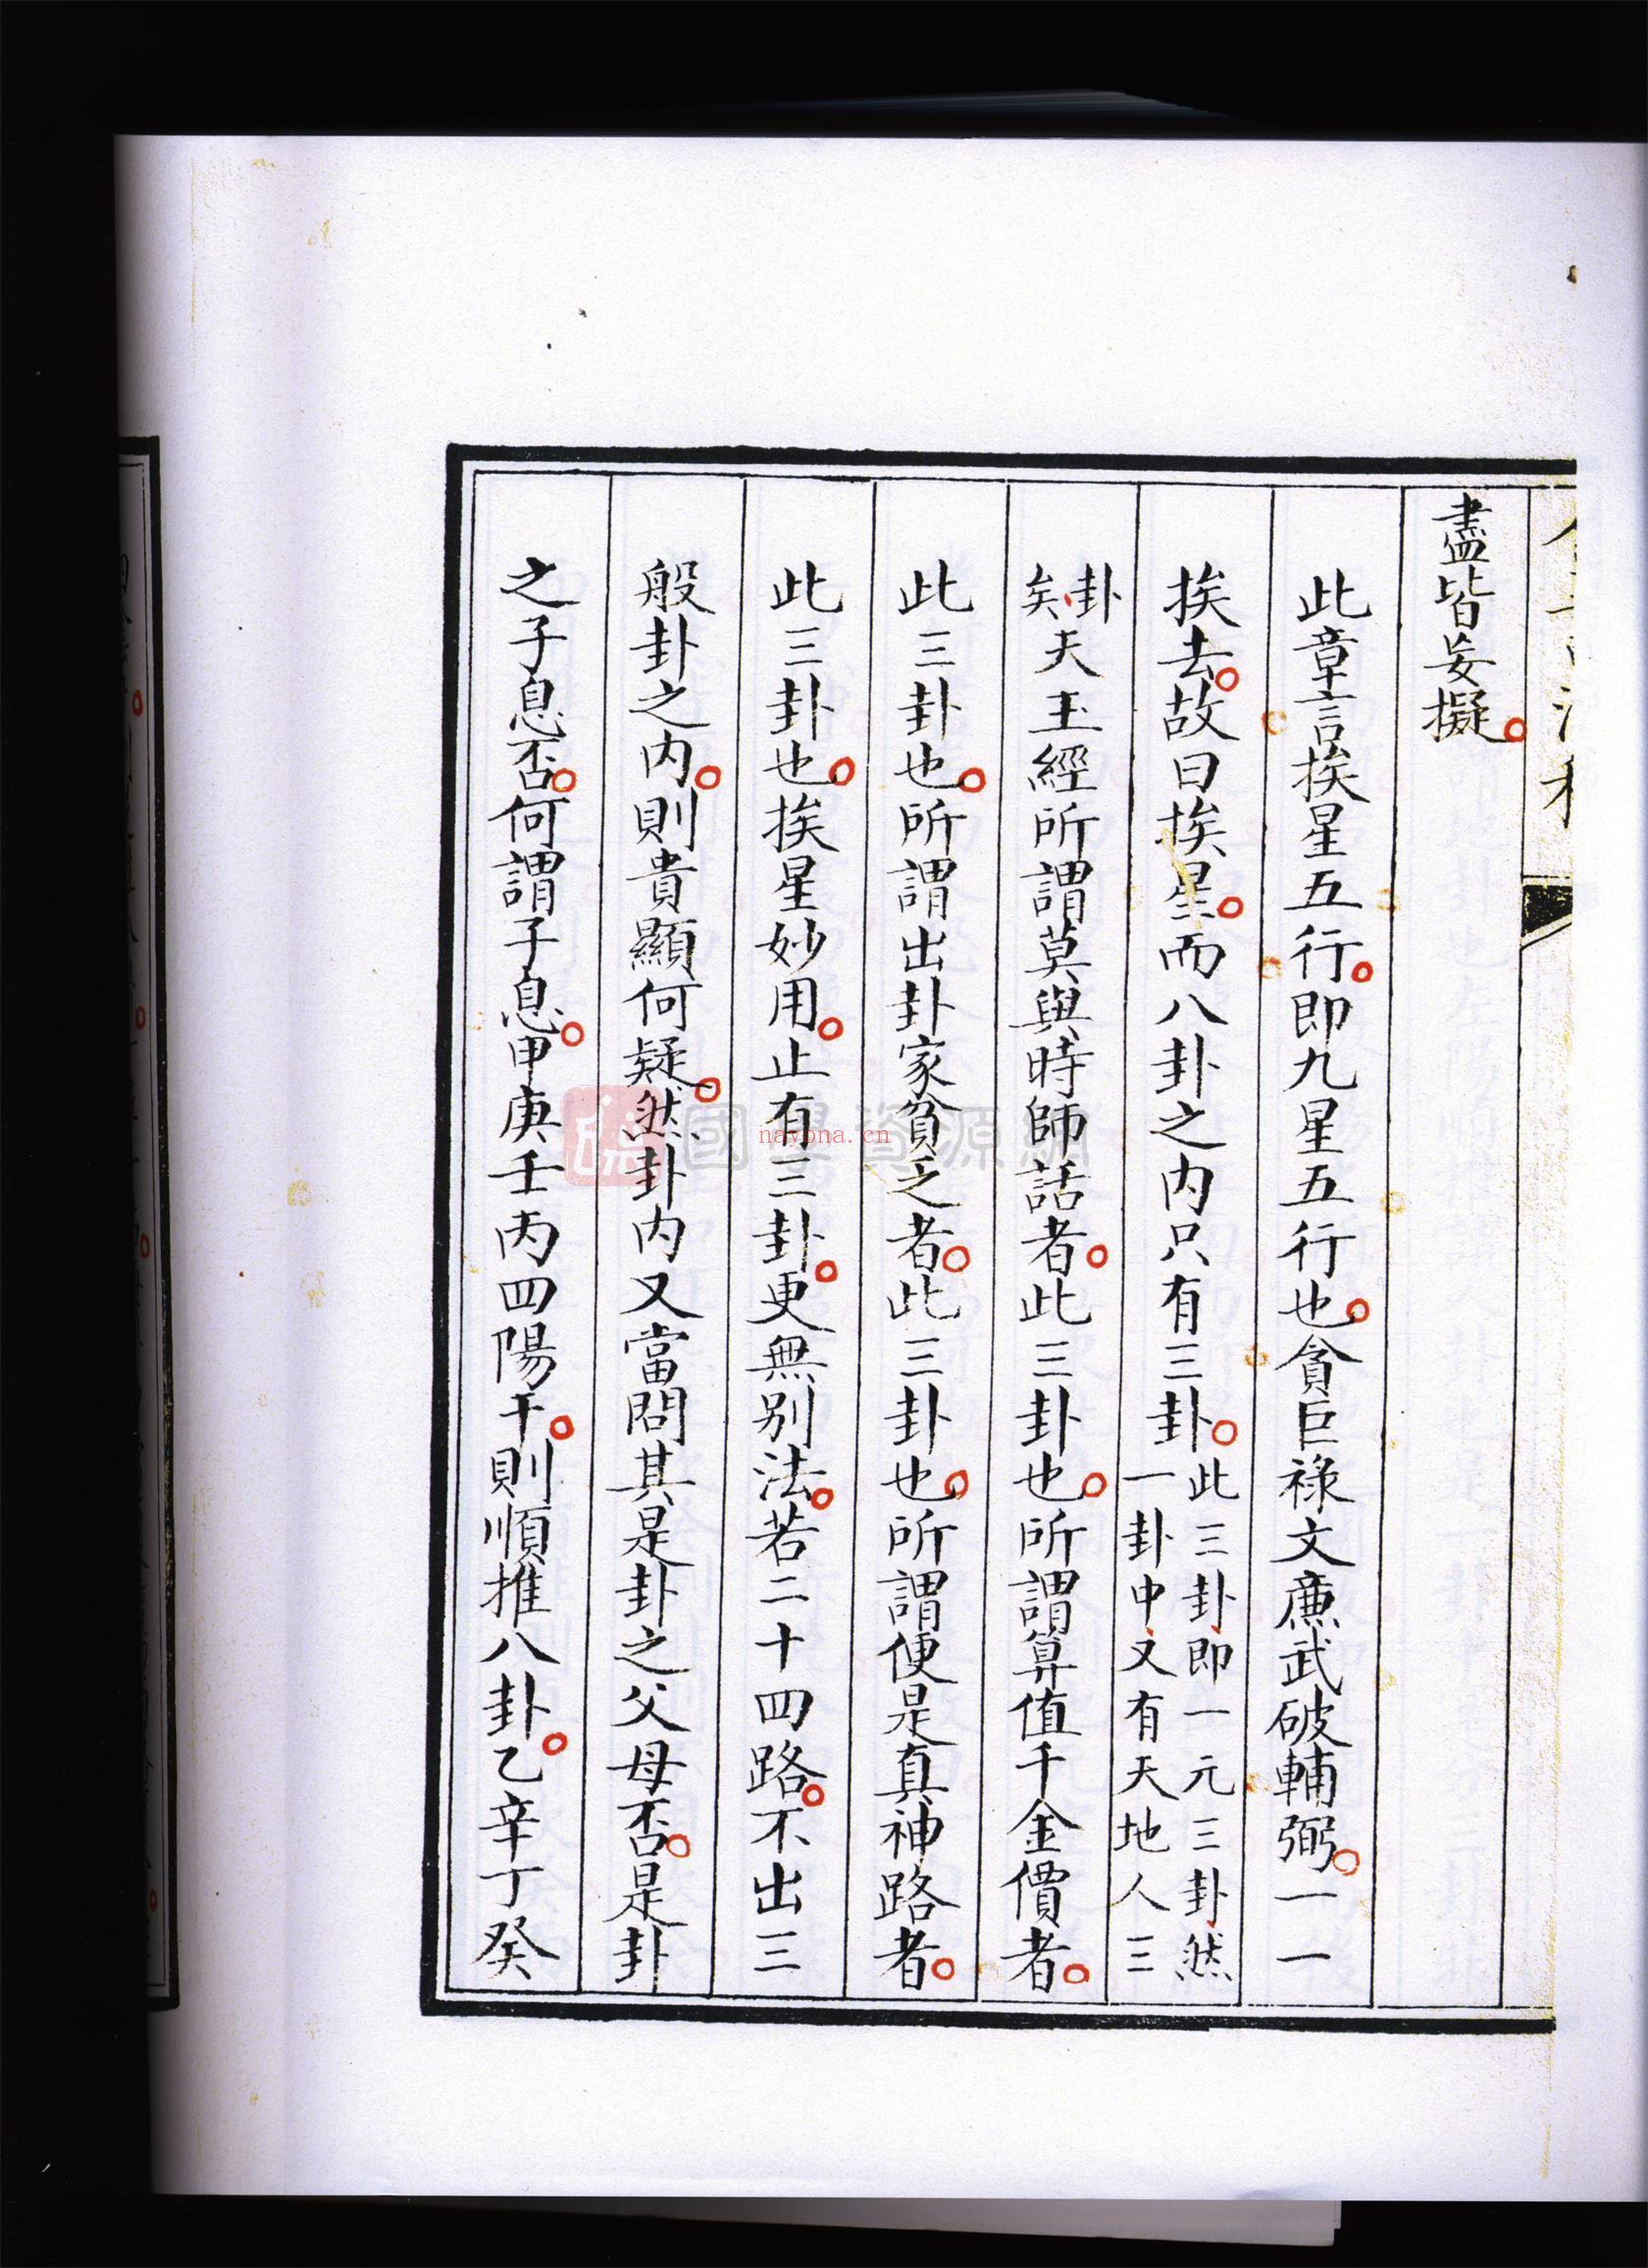 盡皆妄擬。
此章言挨星五行。即九星五行也。貪巨祿文廉武破輔弼。一一
挨去。故曰挨星。而八卦之內只有三卦。此三卦、即一元三卦、然
一卦中、又有天地人三
卦
矣、天玉經所謂莫與時師話者。此三卦也。所謂算值千金價者。
此三卦也。所謂出卦家貧乏者。此三卦也。所謂便是真神路者。
此三卦也。挨星妙用。止有三卦。更無別法。若二十四路。不出三
般卦之內。則貴顯何疑。然卦內又當問其是卦之父母否。是卦
之子息否。何謂子息。甲庚壬丙四陽干。則順推八卦。乙辛丁癸
國學資源網
nayona.cn